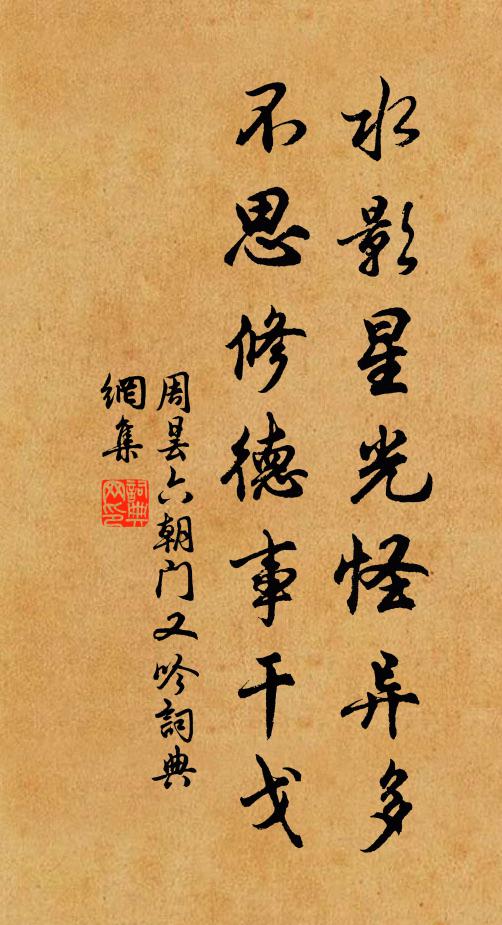 水影星光怪异多
不思修德事干戈
周昙六朝门又吟詞典
網集
詞典
网印